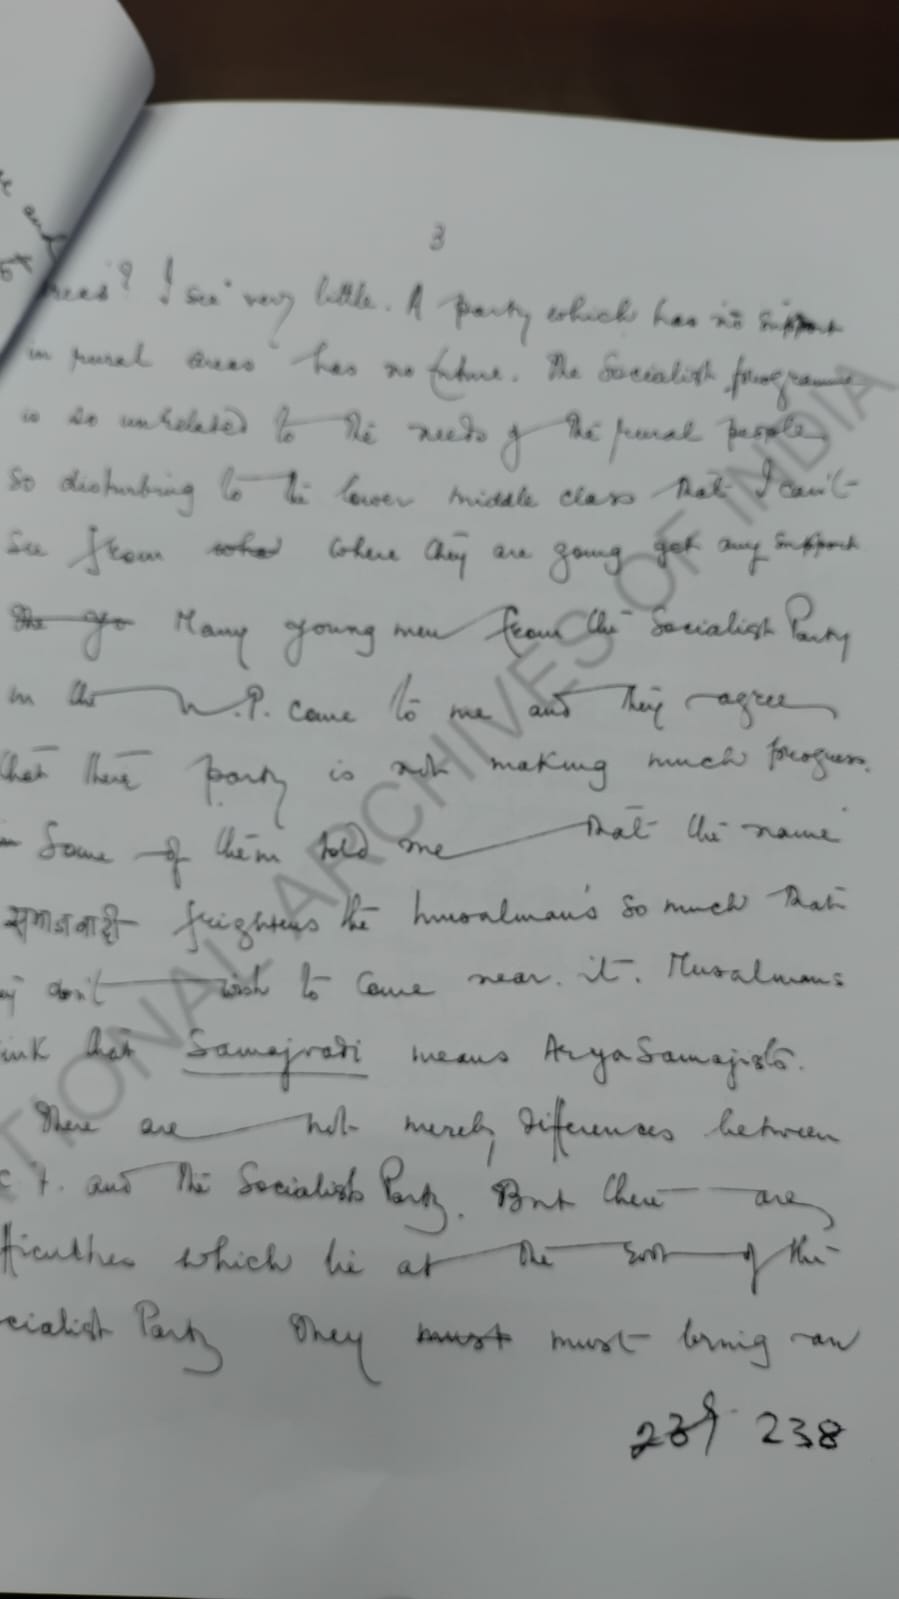 3
areas? I see very little. A party which has no support
in rural areas has no future. The Socialist programme
is so unrelated to the needs of the rural people
so disturbing to the lower middle class that I can't
see from what where they are going get any support
The go Many young men from the Socialist Party
in the U.P. come to me and they agree
that their party is not making much progress.
Some of them told me that the name
समाजवादी frightens the Musalmans so much that
don't wish to come near it. Musalmans
ink that Samajvadi means Arya Samajists.
There are not merely differences between
and the Socialists Party. But there are
fficulties which lie at the root of the
cialist Party They must must bring an
239 238
NATIONAL ARCHIVES OF INDIA